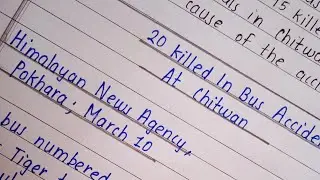 15 kille
ls in Chitwa
cause of the acci
20 killed In Bus Accide
At Chitwan
Himalyan News Agency,
Pokhara; March 10
bus numbered
Tiger